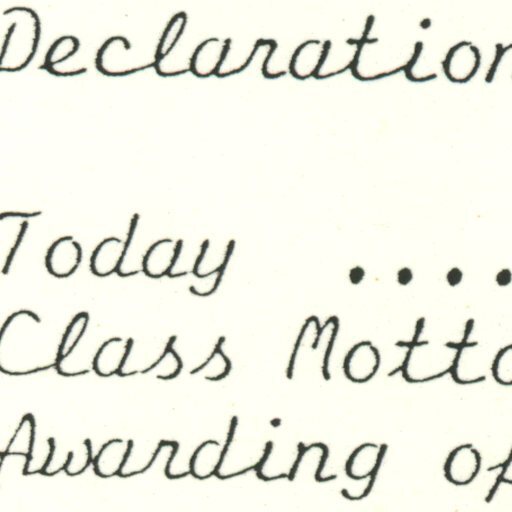 Declaration
Today ....
Class Motto
Awarding of